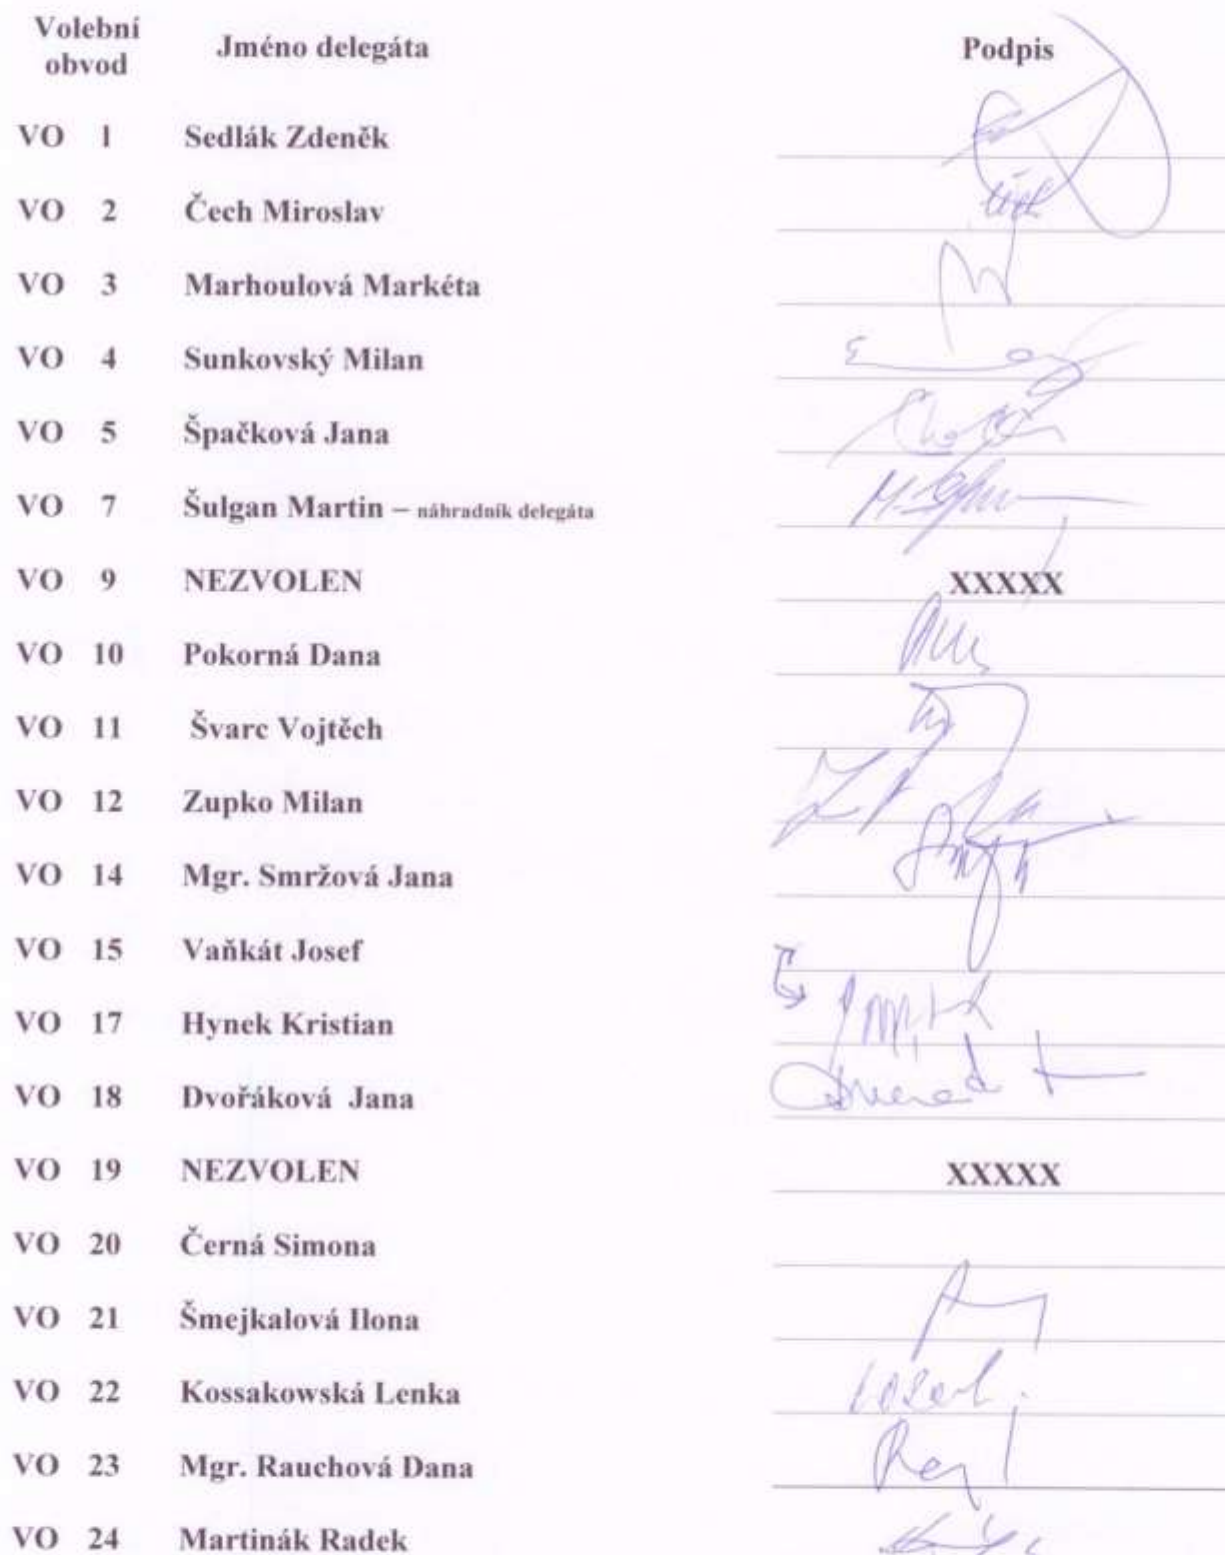 Volební obvod Jméno delegáta Podpis
VO 1 Sedlák Zdeněk
VO 2 Čech Miroslav
VO 3 Marhoulová Markéta
VO 4 Sunkovský Milan
VO 5 Špačková Jana
VO 7 Šulgan Martin – náhradník delegáta
VO 9 NEZVOLEN XXXXX
VO 10 Pokorná Dana
VO 11 Švarc Vojtěch
VO 12 Zupko Milan
VO 14 Mgr. Smržová Jana
VO 15 Vaňkát Josef
VO 17 Hynek Kristian
VO 18 Dvořáková Jana
VO 19 NEZVOLEN XXXXX
VO 20 Černá Simona
VO 21 Šmejkalová Ilona
VO 22 Kossakowská Lenka
VO 23 Mgr. Rauchová Dana
VO 24 Martinák Radek